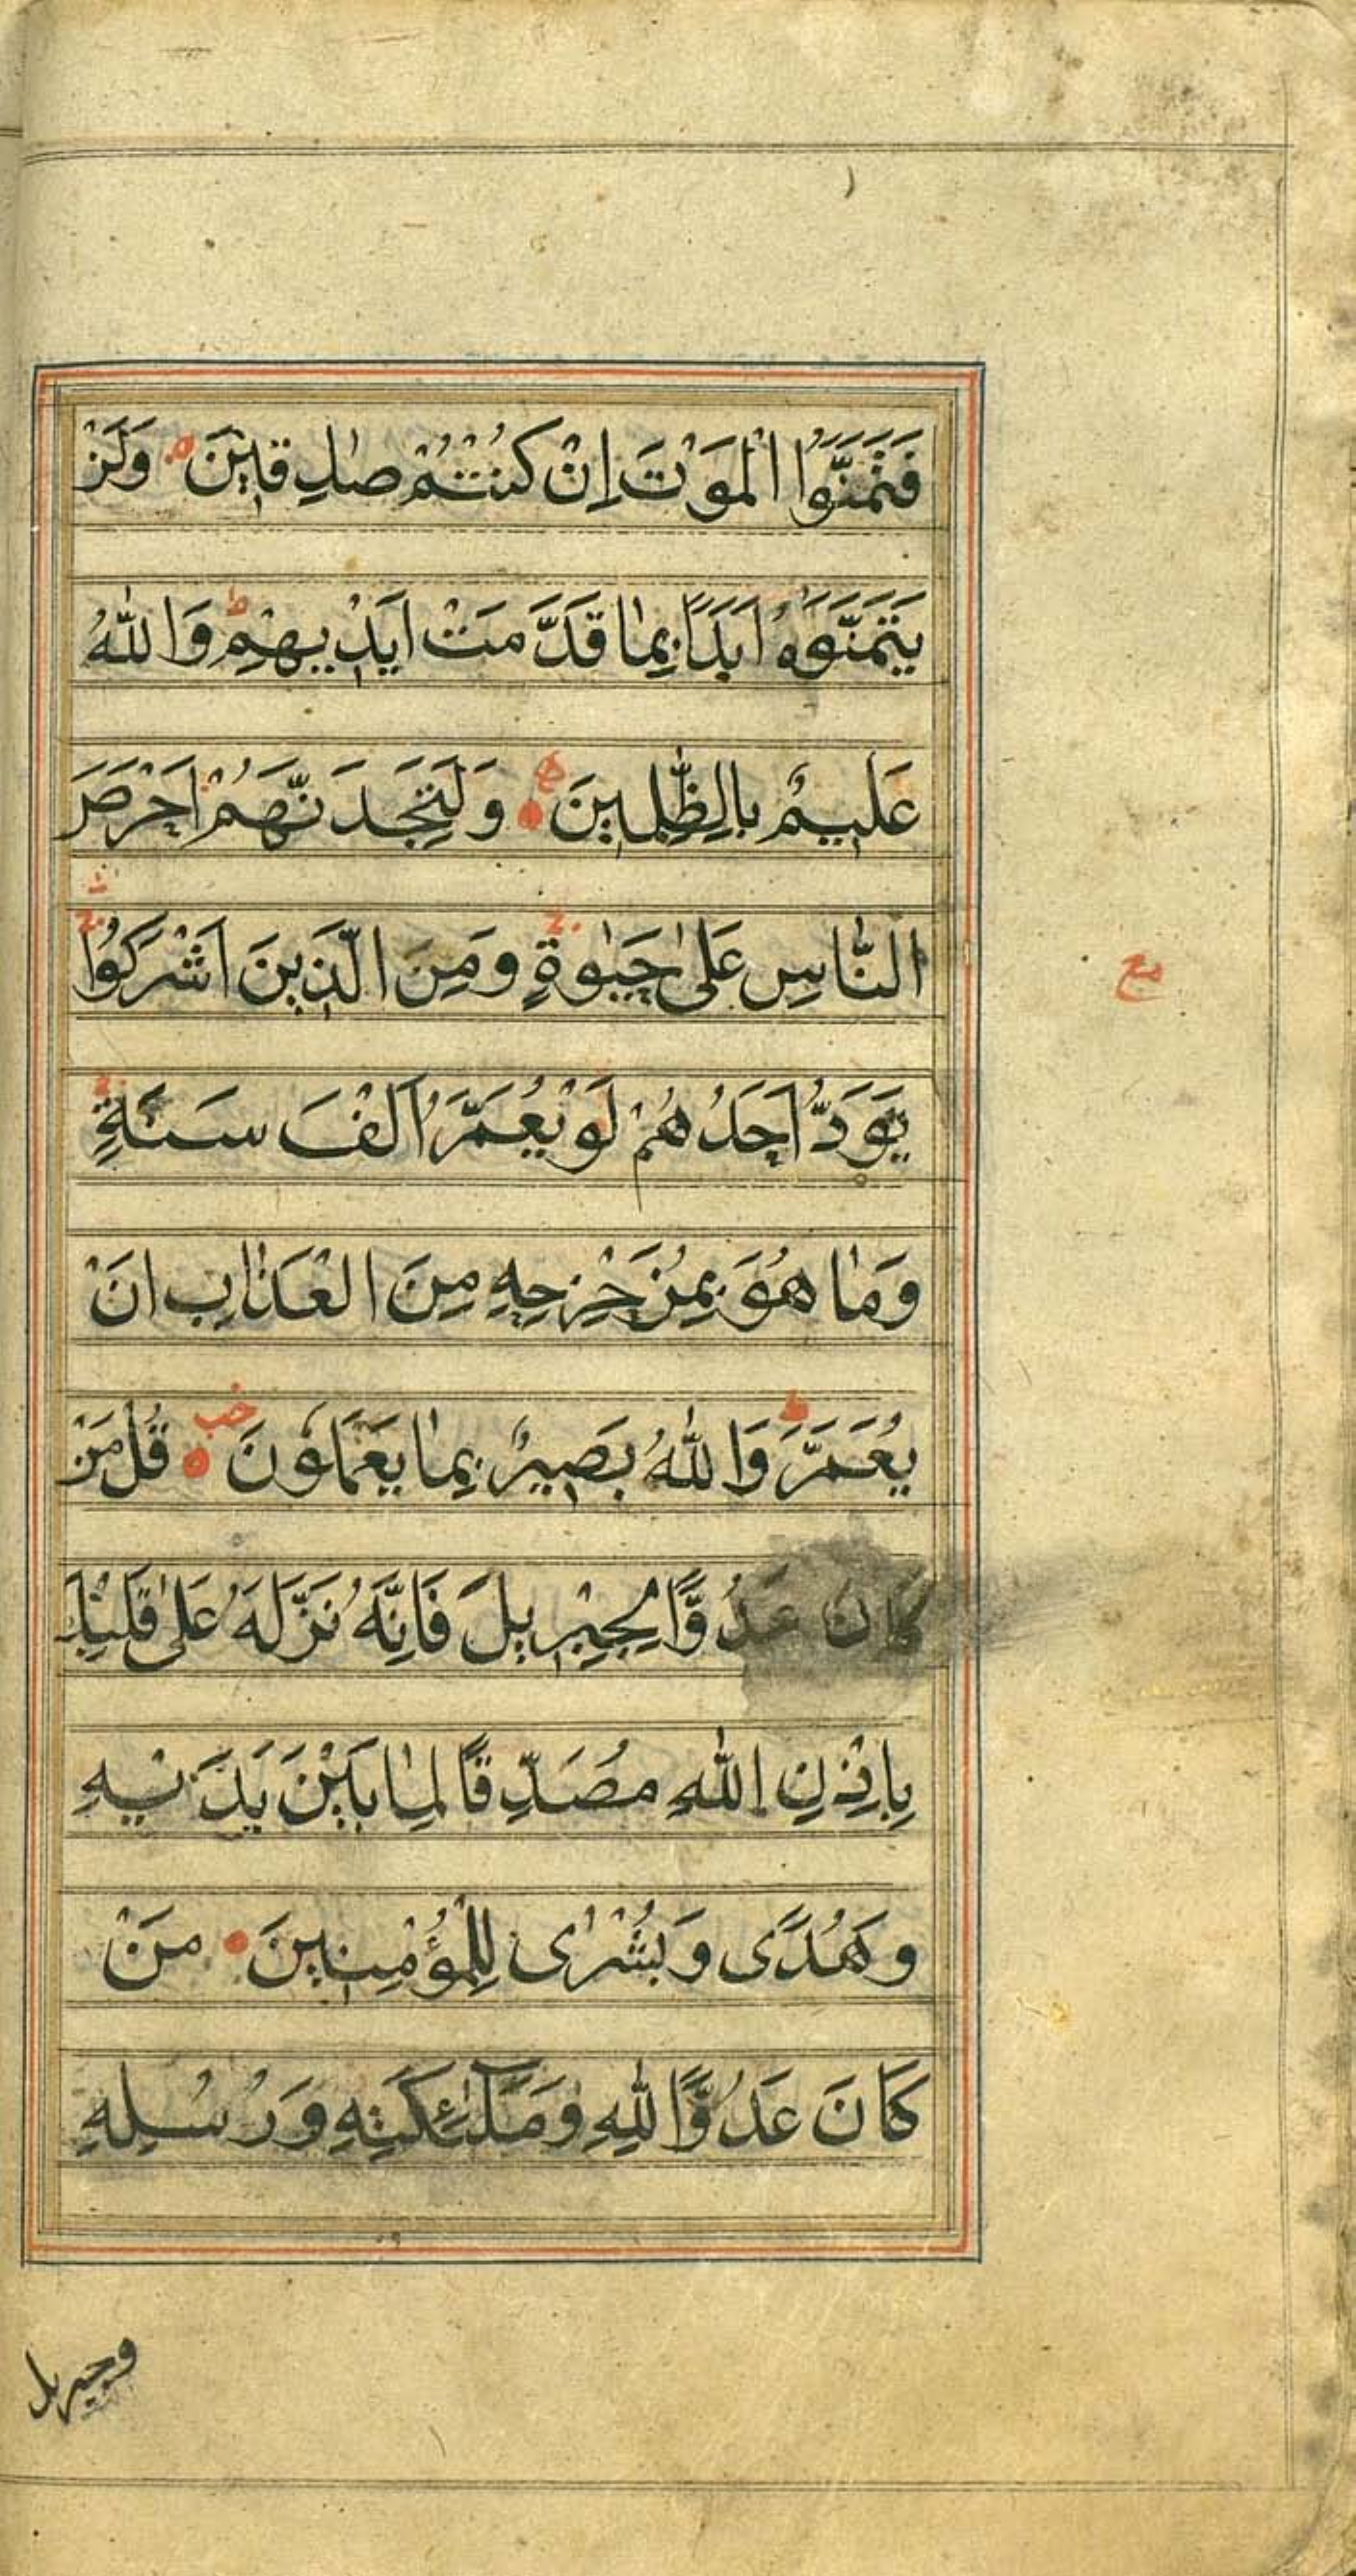 فَتَمَنَّوُا الْمَوْتَ اِنْ كُنْتُمْ صٰدِقِيْنَ وَلَنْ
يَتَمَنَّوْهُ اَبَدًا بِمٰا قَدَّمَتْ اَيْدِيهِمْ ط وَاللّٰهُ
عَلِيمٌ بِالظّٰلِمِينَ وَلَتَجِدَنَّهُمْ اَحْرَصَ
النّٰاسِ عَلىٰ حَيٰوةٍ ج وَمِنَ الَّذِينَ اَشْرَكُوا ج
مع
يَوَدُّ اَحَدُهُمْ لَوْ يُعَمَّرُ اَلْفَ سَنَةٍ ج
وَمٰا هُوَ بِمُزَحْزِحِهِ مِنَ الْعَذٰابِ اَنْ
يُعَمَّرَ ط وَاللّٰهُ بَصِيرٌ بِمٰا يَعْمَلُونَ قُلْ مَنْ
كَانَ عَدُوًّا لِجِبْرِيلَ فَاِنَّهُ نَزَّلَهُ عَلىٰ قَلْبِكَ
بِاِذْنِ اللّٰهِ مُصَدِّقًا لِمٰا بَيْنَ يَدَيْهِ
وَهُدًى وَبُشْرٰى لِلْمُؤْمِنِينَ مَنْ
كَانَ عَدُوًّا لِلّٰهِ وَمَلٰٓئِكَتِهِ وَرُسُلِهِ
وجبريل